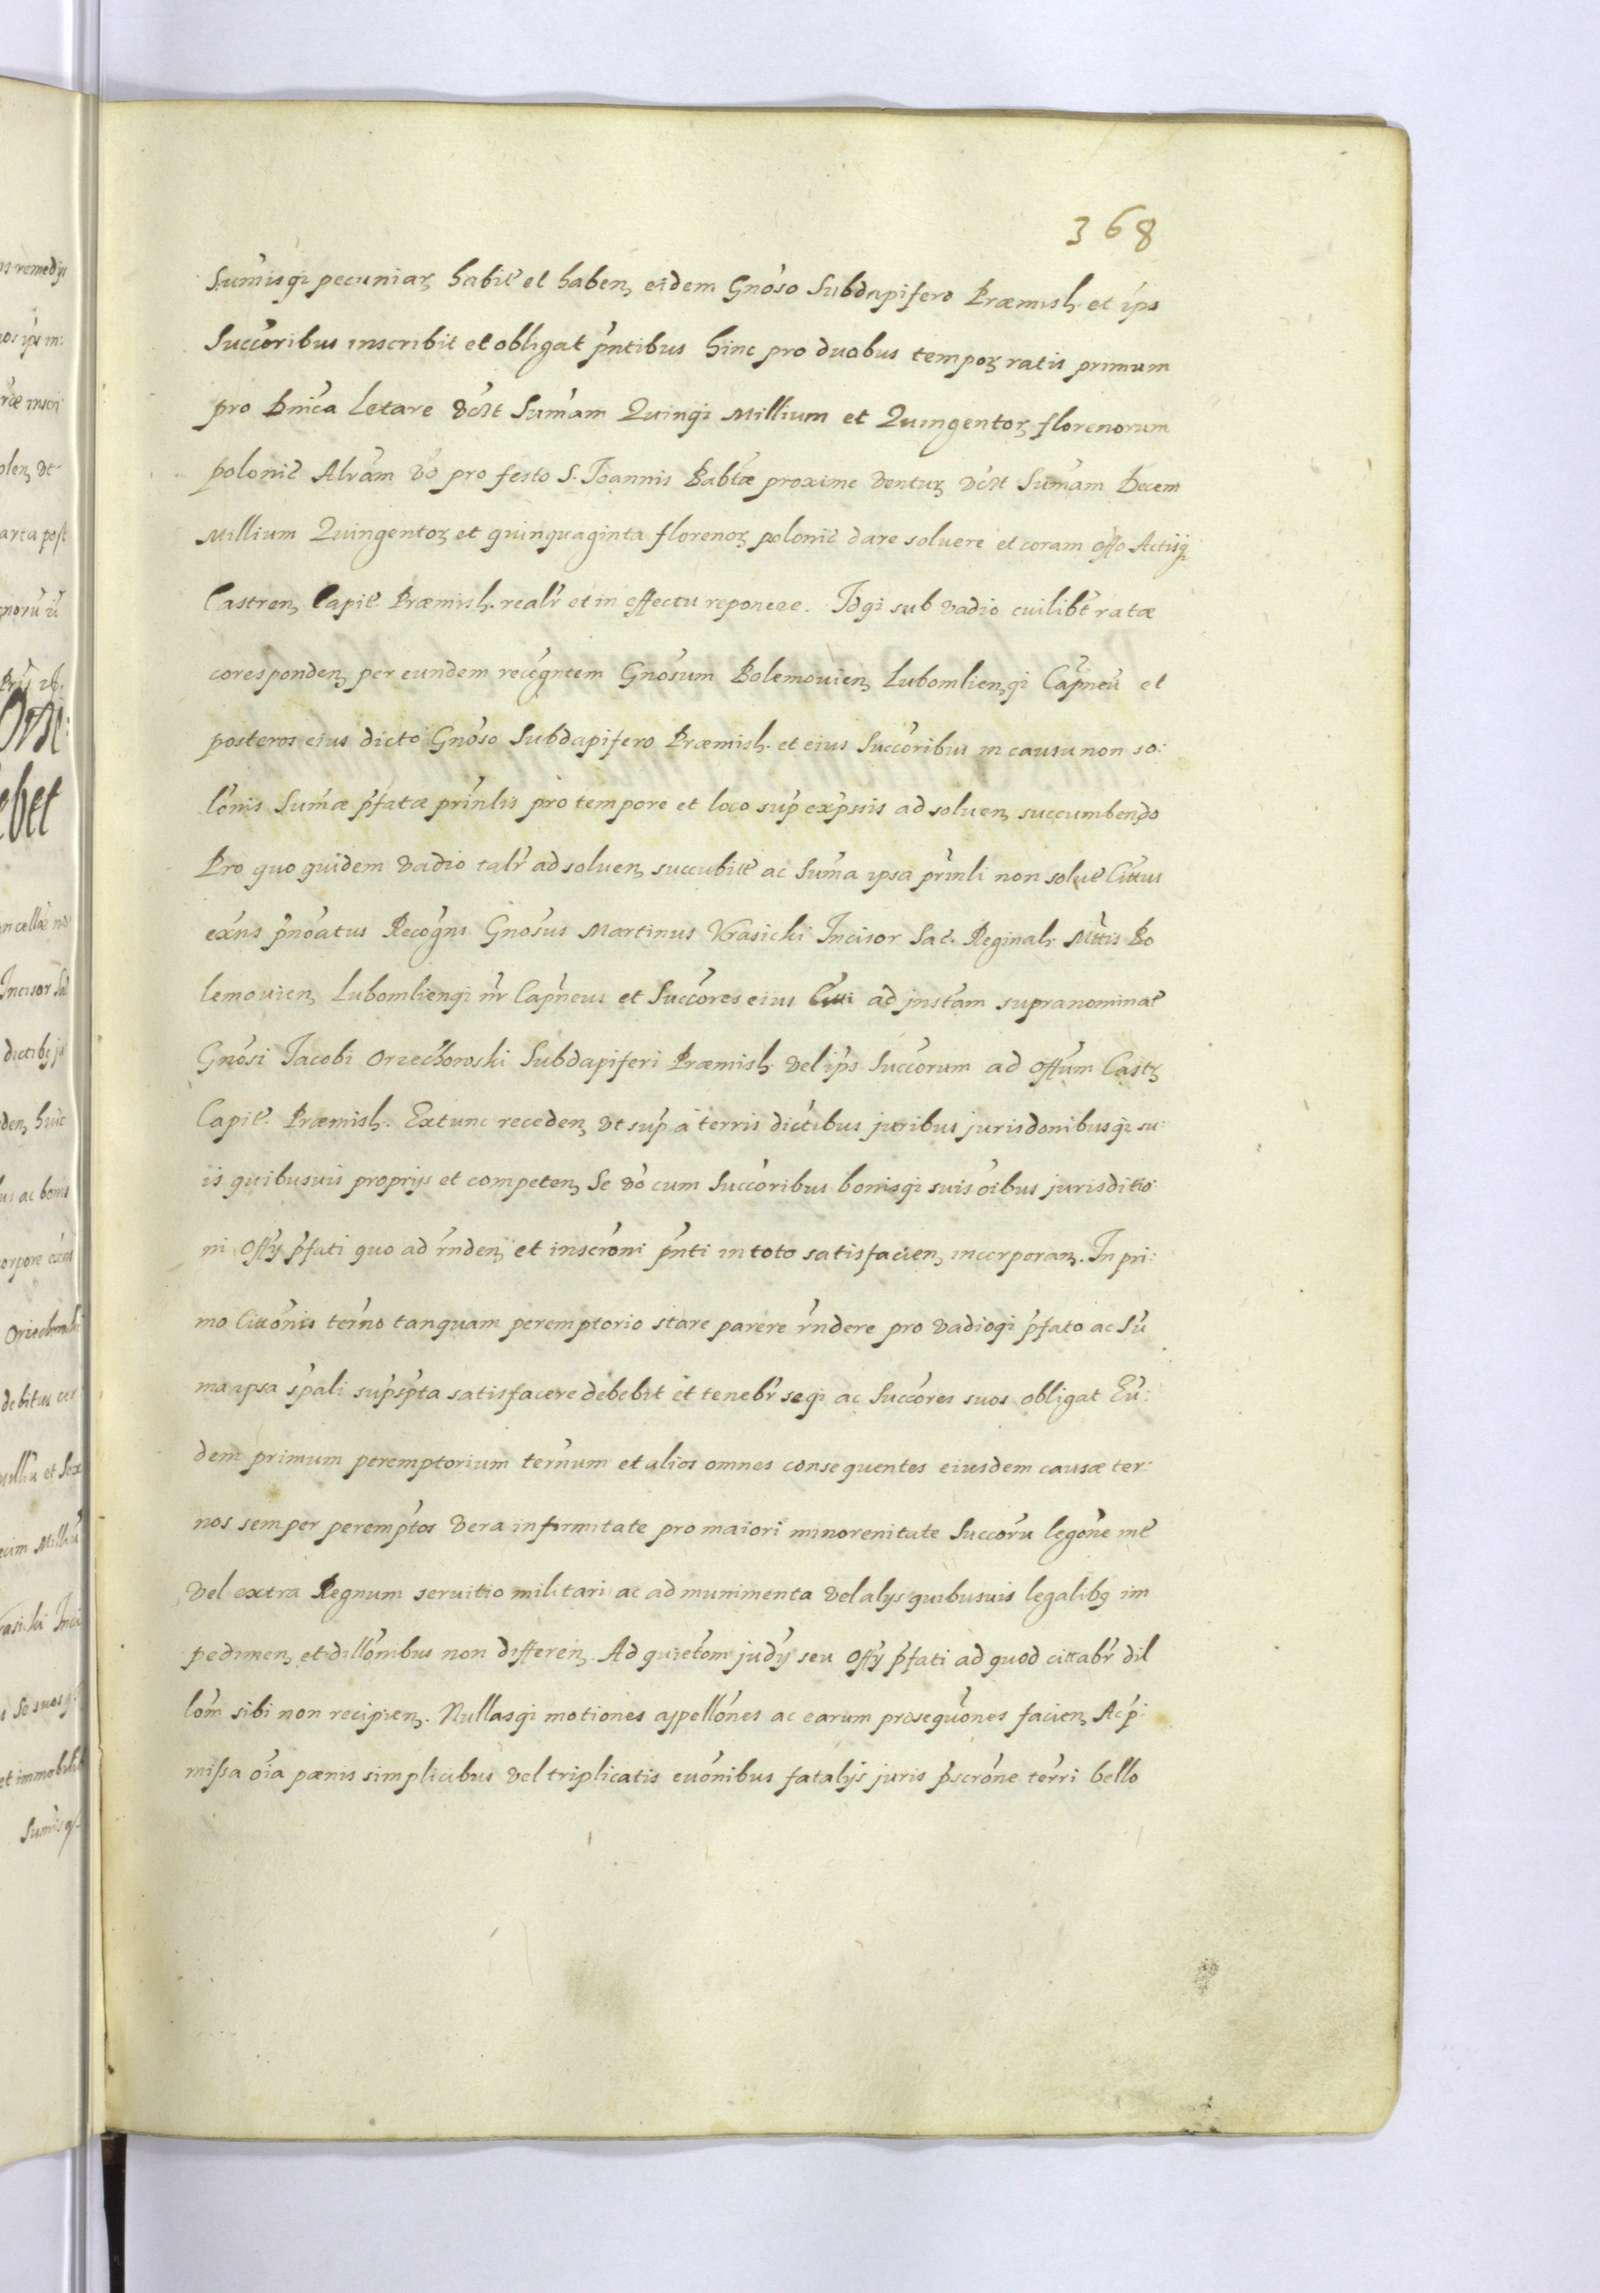 368
Sumisqȝ pecuniarȝ habit̃ et habenȝ eidem Gnoso Subdapifero Præmish. et ips
Succoribus inscribit et obligat pñtibus hinc pro duobus temporȝ ratis primum
pro Dnica Letare vczt Sumam Quinqȝ Millium et Quingentorȝ florenorum
polonic̃ Alrãm vo pro festo S. Joannis Babtæ proxime venturȝ vczt Sumam Decem
Millium Quingentorȝ et quinquaginta florenorȝ polonic̃ dare soluere et coram offo Actisqȝ
Castrenȝ Capit̃ Præmish. realr et in effectu reponere. Idqȝ sub vadio cuilibt ratæ
corespondenȝ per eundem recogntem Gnosum Bolemouienȝ Lubomlienȝqȝ Capneũ et
posteros eius dicto Gnoso Subdapifero Præmish. et eius Succoribus in causu non so:
lonis Sumæ pfatæ prinlis pro tempore et loco sup expssis ad soluenȝ succumbendo
Pro quo quidem vadio talr ad soluenȝ succubit̃ ac Suma ipsa prinli non solut̃ Cittus
exns pnoatus Recogns Gnosus Martinus Krasicki Incisor Sac̃. Reginalȝ Mttis Bo
lemouienȝ Lubomlienqȝ nr Capneus et Succores eius Citti ad jnstam supranominat̃
Gnosi Jacobi Orzechowski Subdapiferi Præmish vel ips Succorum ad Offum Castȝ
Capit̃. Præmish. Extunc recedenȝ vt sup a terris dictibus juribus jurisdonibusqȝ su:
is quibusuis proprijs et competenȝ Se vo cum Succoribus bonisqȝ suis oibus jurisditio
ni Offy pfati quo ad rndenȝ et inscroni pnti in toto satisfacienȝ incorporanȝ. In pri:
mo Cittonis terno tanquam peremptorio stare parere rndere pro vadioqȝ pfato ac Sũ
ma ipsa spali supspta satisfacere debebit et tenebr seqȝ ac Succores suos obligat Eũ:
dem primum peremptorium ternum et alios omnes consequentes eiusdem causæ ter:
nos semper peremptos vera infirmitate pro maiori minorenitate Succorũ legone mẽ
vel extra Regnum seruitio militari ac ad munimenta vel alys quibusuis legalibȝ im
pedimenȝ et dillonibus non differenȝ. Ad quietom judy seu Offy pfati ad quod cittabr dil
lom sibi non recipienȝ. Nullasqȝ motiones appellones ac earum prosequones facienȝ Ac p:
missa oia pænis simplicibus vel triplicatis euonibus fatalys juris pscrone terri bello